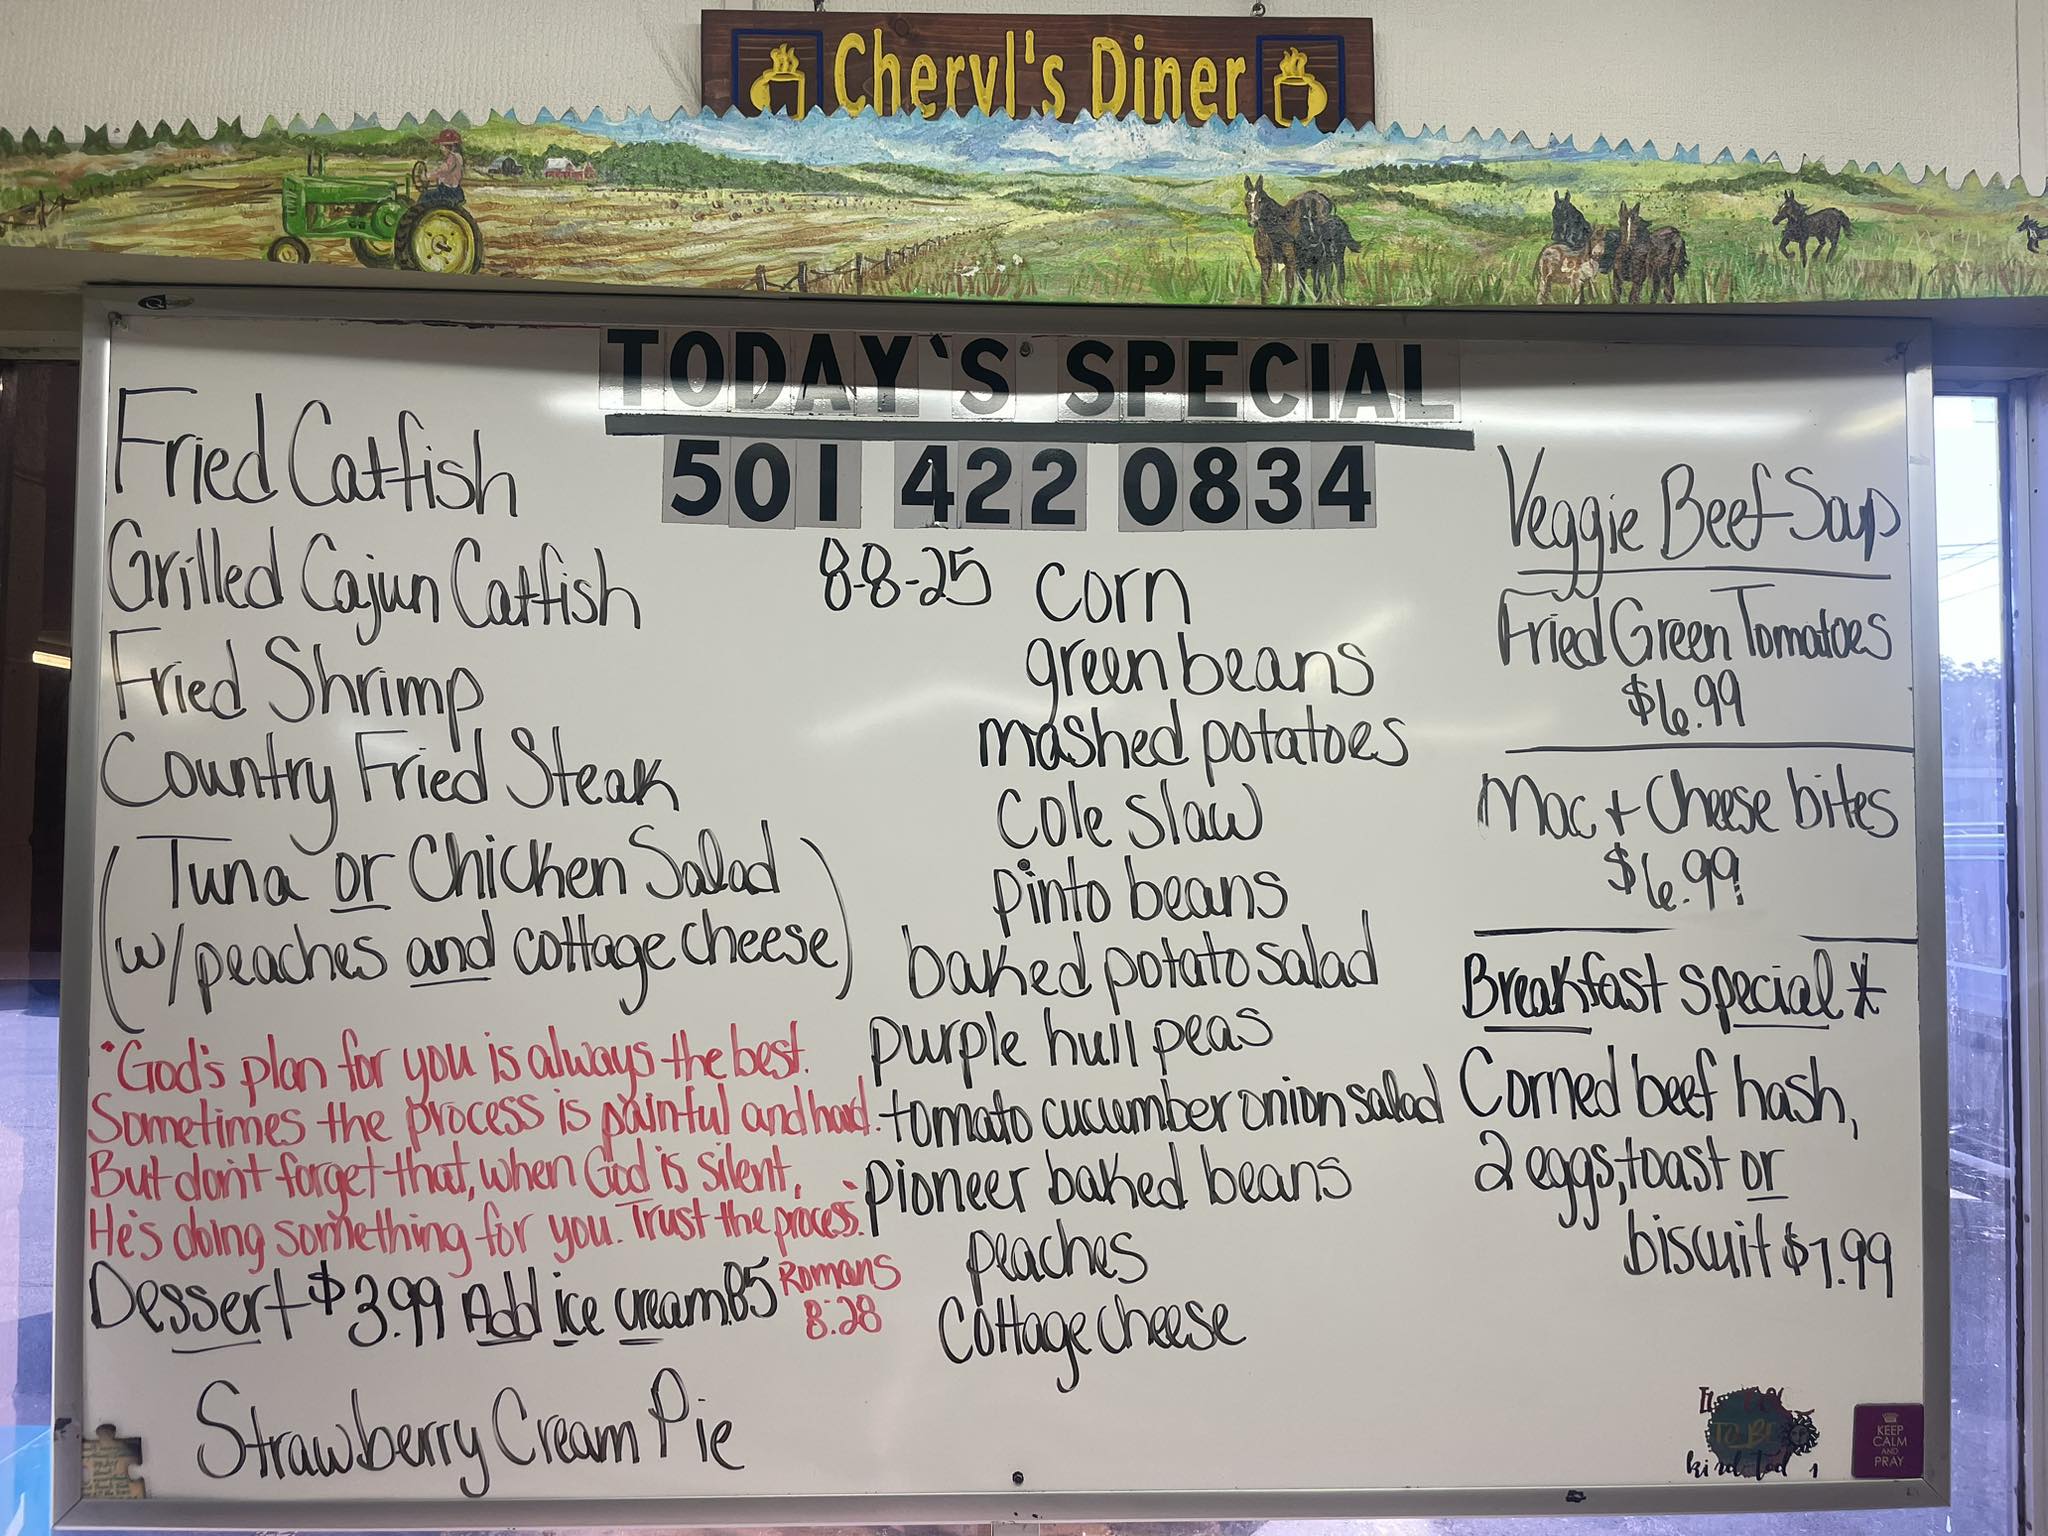 Cheryl's Diner
TODAY'S SPECIAL
501 422 0834
8-8-25
Fried Catfish
Grilled Cajun Catfish
Fried Shrimp
Country Fried Steak
(Tuna or Chicken Salad
w/peaches and cottage cheese)
"God's plan for you is always the best.
Sometimes the process is painful and hard.
But don't forget that, when God is silent,
He's doing something for you. Trust the process."
Romans
8:28
Dessert $3.99 Add ice cream .85
Strawberry Cream Pie
corn
green beans
mashed potatoes
Cole slaw
pinto beans
baked potato salad
purple hull peas
tomato cucumber onion salad
pioneer baked beans
peaches
Cottage cheese
Veggie Beef Soup
Fried Green Tomatoes
$6.99
Mac + Cheese bites
$6.99
Breakfast special *
Corned beef hash,
2 eggs, toast or
biscuit $7.99
KEEP
CALM
AND
PRAY